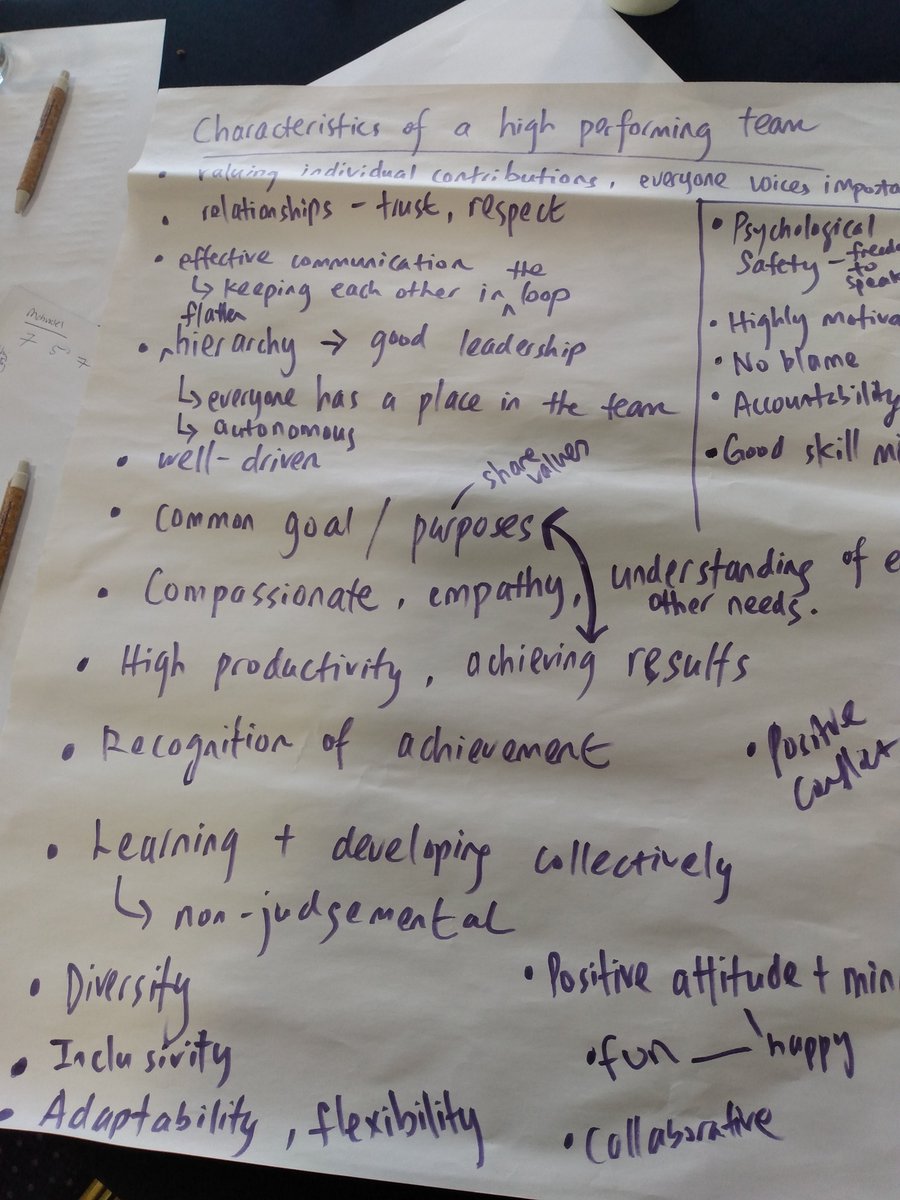 Characteristics of a high performing team
• valuing individual contributions, everyone voices importa
• relationships – trust, respect
• effective communication
↳ keeping each other in the loop
• flatten hierarchy → good leadership
↳ everyone has a place in the team
↳ autonomous
• well-driven
• Common goal / purposes – share values
• Compassionate, empathy, understanding of e
other needs.
• High productivity, achieving results
• Recognition of achievement
• Learning + developing collectively
↳ non-judgemental
• Diversity
• Inclusivity
• Adaptability, flexibility
• Psychological
Safety – freedo
to
speak
• Highly motiva
• No blame
• Accountability
• Good skill mi
• Positive
conflict
• Positive attitude + min
• fun — happy
• Collaborative